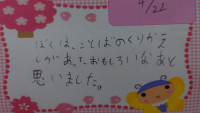 4/22
ぼくは、ことばのくりかえ
しがあって、おもしろいなあと
思いました。